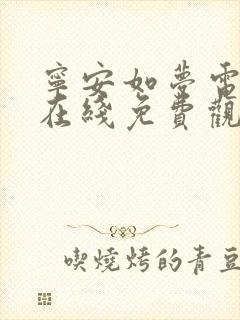 寧安如夢電
在綫免費觀
喫燒烤的青豆